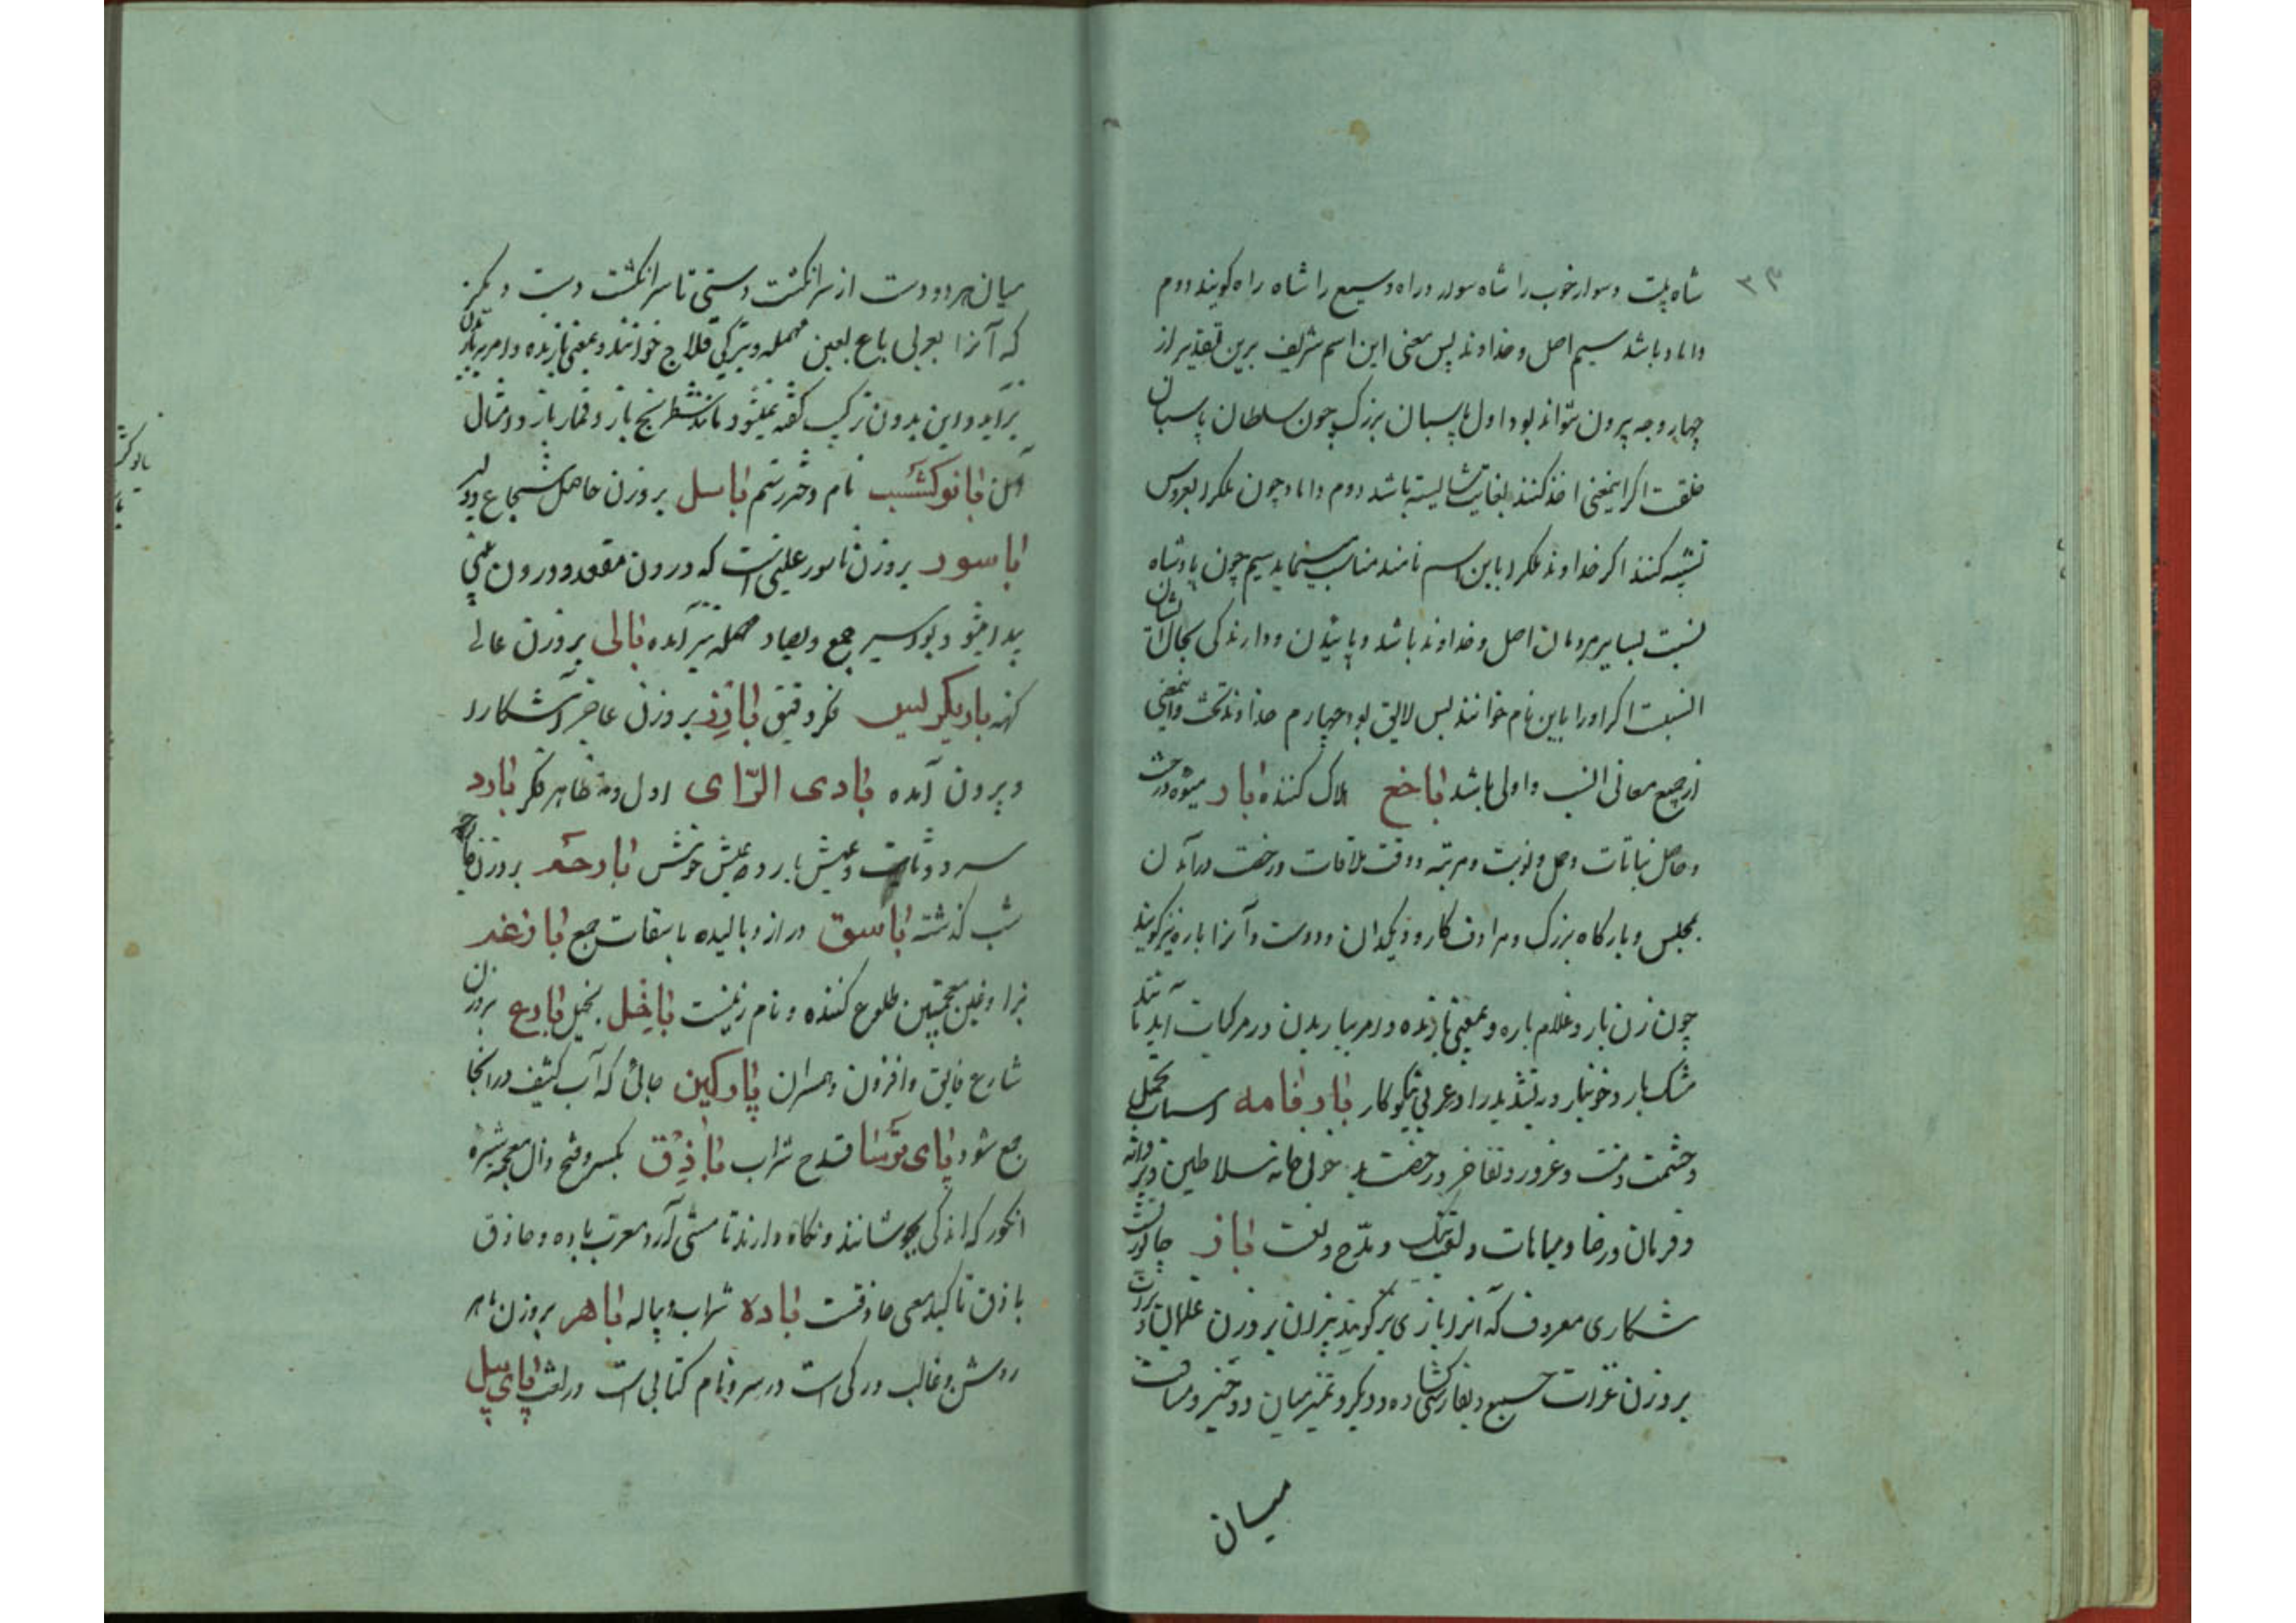 ۳۳
شاه بیت و سوار خوب را شاه سوار و راه وسیع را شاه راه گویند دوم
داماد باشد سیم اصل و خداوند پس معنی این اسم شریف برین تقدیر از
چهار وجه بیرون نتواند بود اول پاسبان بزرگ چون سلطان پاسبان
خلقت اگر اینمعنی اخذ کنند بغایت شایسته باشد دوم داماد چون ملک را بعروس
تشبیه کنند اگر خداوند ملک را باین اسم نامند مناسب مینماید سیم چون پادشاه
نسبت بسایر مردمان اصل و خداوند باشد و پائیدن و دارندگی بحال ایشان
انسبت اگر او را باین نام خوانند بس لایق بود چهارم خداوند تخت و اینمعنی
از جمیع معانی انسب و اولی باشد باخع هلاک کننده بار میوه درخت
و حاصل نباتات و حمل و نوبت و مرتبه و وقت ملاقات و رخصت درآمدن
بمجلس و بارگاه بزرگ و مرادف کار و دیگدان و دوست و آنرا باره نیز گویند
چون زن بار و غلام باره و بمعنی بارنده و امر بباریدن و در مرکبات آید مانند
مشک بار و خونبار و بتشدید را در عربی نیکوکار بارنامه اسباب تجمل
و حشمت و منت و غرور و تفاخر و رخصت بدخولی خانه سلاطین و پروانه
و فرمان و رضا و مباهات و لقب نیک و مدح و لغت باز جانوریست
شکاری معروف که آنرا بازی نیز گویند بیزان بر وزن غلمان و بزات
بر وزن غزات جمع و بفارسی گشاده و دیگر و تمیز میان دو چیز و مسافت
میان
میان هر دو دست از سر انگشت دستی تا سر انگشت دست دیگر
که آنرا بعربی باع بعین مهمله و بترکی قلاج خوانند و بمعنی بازنده و امر ببازیدن
برآید و این بدون ترکیب گفته نمیشود مانند شطرنج باز و قمار باز و امثال
آن بانوگشسب نام دختر رستم باسل بر وزن حاصل شجاع و دلیر
باسور بر وزن ناسور علتی است که درون مقعد و درون بینی
پیدا میشود بواسیر جمع و بصاد مهمله نیز آمده بالی بر وزن عالی
کهنه باریکریس فکر دقیق بارز بر وزن عاجز آشکارا
و بیرون آمده بادی الرّای اول و ظاهر فکر بارد
سرد و ثابت و عیش بارد عیش خوش بارحه بر وزن
شب گذشته باسق دراز و بالیده باسقات جمع بازغه
بزا و غین معجمتین طلوع کننده و نام زنیست باخل بخیل بارع بر وزن
شارع فایق و افزون و همسران پارگین جائی که آب کثیف در آنجا
جمع شود پای ترسا قدح شراب باذق بکسر و فتح ذال معجمه شیره
انگور که اندکی بجوشانند و نگاه دارند تا مستی آرد معرب باده و حاذق
باذق تأکید معنی حاذقست باده شراب و پیاله باهر بر وزن ماهر
روشن و غالب و رگی است در سر و نام کتابی است در لغت پای پیل